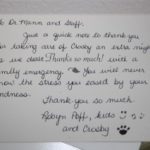 Dr. Mann and Staff,
Just a quick note to thank you
for taking care of Crosby an extra night
Thanks so much! with a
family emergency. You will never
know the stress you eased by your
kindness.
Thank you so much
Robyn Poff, kids
and Crosby